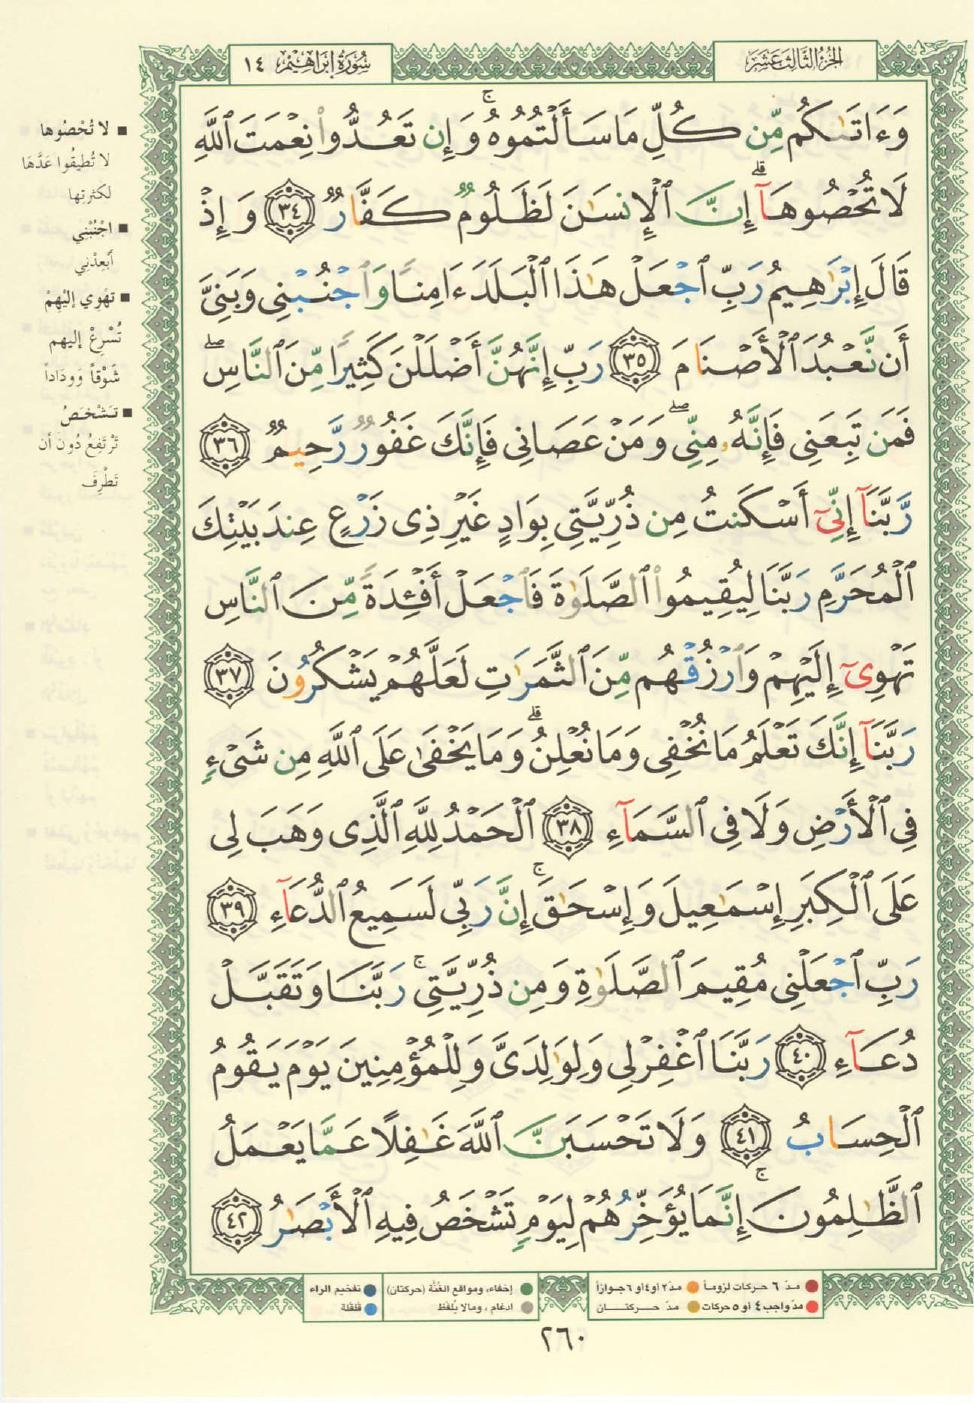 الجزء الثالث عشر
سورة إبراهيم ١٤
وَءَاتَىٰكُم مِّن كُلِّ مَا سَأَلْتُمُوهُ ۚ وَإِن تَعُدُّوا۟ نِعْمَتَ ٱللَّهِ
لَا تُحْصُوهَآ ۗ إِنَّ ٱلْإِنسَٰنَ لَظَلُومٌ كَفَّارٌ ﴿٣٤﴾ وَإِذْ
قَالَ إِبْرَٰهِيمُ رَبِّ ٱجْعَلْ هَٰذَا ٱلْبَلَدَ ءَامِنًا وَٱجْنُبْنِى وَبَنِىَّ
أَن نَّعْبُدَ ٱلْأَصْنَامَ ﴿٣٥﴾ رَبِّ إِنَّهُنَّ أَضْلَلْنَ كَثِيرًا مِّنَ ٱلنَّاسِ ۖ
فَمَن تَبِعَنِى فَإِنَّهُۥ مِنِّى ۖ وَمَنْ عَصَانِى فَإِنَّكَ غَفُورٌ رَّحِيمٌ ﴿٣٦﴾
رَّبَّنَآ إِنِّىٓ أَسْكَنتُ مِن ذُرِّيَّتِى بِوَادٍ غَيْرِ ذِى زَرْعٍ عِندَ بَيْتِكَ
ٱلْمُحَرَّمِ رَبَّنَا لِيُقِيمُوا۟ ٱلصَّلَوٰةَ فَٱجْعَلْ أَفْـِٔدَةً مِّنَ ٱلنَّاسِ
تَهْوِىٓ إِلَيْهِمْ وَٱرْزُقْهُم مِّنَ ٱلثَّمَرَٰتِ لَعَلَّهُمْ يَشْكُرُونَ ﴿٣٧﴾
رَبَّنَآ إِنَّكَ تَعْلَمُ مَا نُخْفِى وَمَا نُعْلِنُ ۗ وَمَا يَخْفَىٰ عَلَى ٱللَّهِ مِن شَىْءٍ
فِى ٱلْأَرْضِ وَلَا فِى ٱلسَّمَآءِ ﴿٣٨﴾ ٱلْحَمْدُ لِلَّهِ ٱلَّذِى وَهَبَ لِى
عَلَى ٱلْكِبَرِ إِسْمَٰعِيلَ وَإِسْحَٰقَ ۚ إِنَّ رَبِّى لَسَمِيعُ ٱلدُّعَآءِ ﴿٣٩﴾
رَبِّ ٱجْعَلْنِى مُقِيمَ ٱلصَّلَوٰةِ وَمِن ذُرِّيَّتِى ۚ رَبَّنَا وَتَقَبَّلْ
دُعَآءِ ﴿٤٠﴾ رَبَّنَا ٱغْفِرْ لِى وَلِوَٰلِدَىَّ وَلِلْمُؤْمِنِينَ يَوْمَ يَقُومُ
ٱلْحِسَابُ ﴿٤١﴾ وَلَا تَحْسَبَنَّ ٱللَّهَ غَٰفِلًا عَمَّا يَعْمَلُ
ٱلظَّٰلِمُونَ ۚ إِنَّمَا يُؤَخِّرُهُمْ لِيَوْمٍ تَشْخَصُ فِيهِ ٱلْأَبْصَٰرُ ﴿٤٢﴾
■ لا تُحْصُوها
لا تُطِيقُوا عَدَّهَا
لكثرتِها
■ اجْنُبْنِي
أَبْعِدْنِي
■ تَهْوِي إليْهِمْ
تُسْرِعُ إليهم
شَوْقاً وَوِدَاداً
■ تَشْخَصُ
تَرْتَفِعُ دُونَ أن
تَطْرِفَ
مدّ ٦ حركات لزوماً ● مدّ ٢ أو ٤ أو ٦ جوازاً ● إخفاء، ومواقع الغُنَّة (حركتان) ● تفخيم الراء
مدّ واجب ٤ أو ٥ حركات ● مدّ حركتان ● ادغام ، ومالا يُلفَظ ● قلقلة
٢٦٠